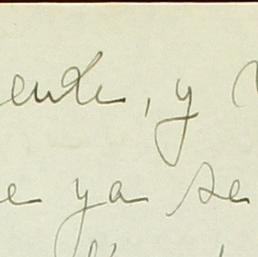 ente, y
e ya se